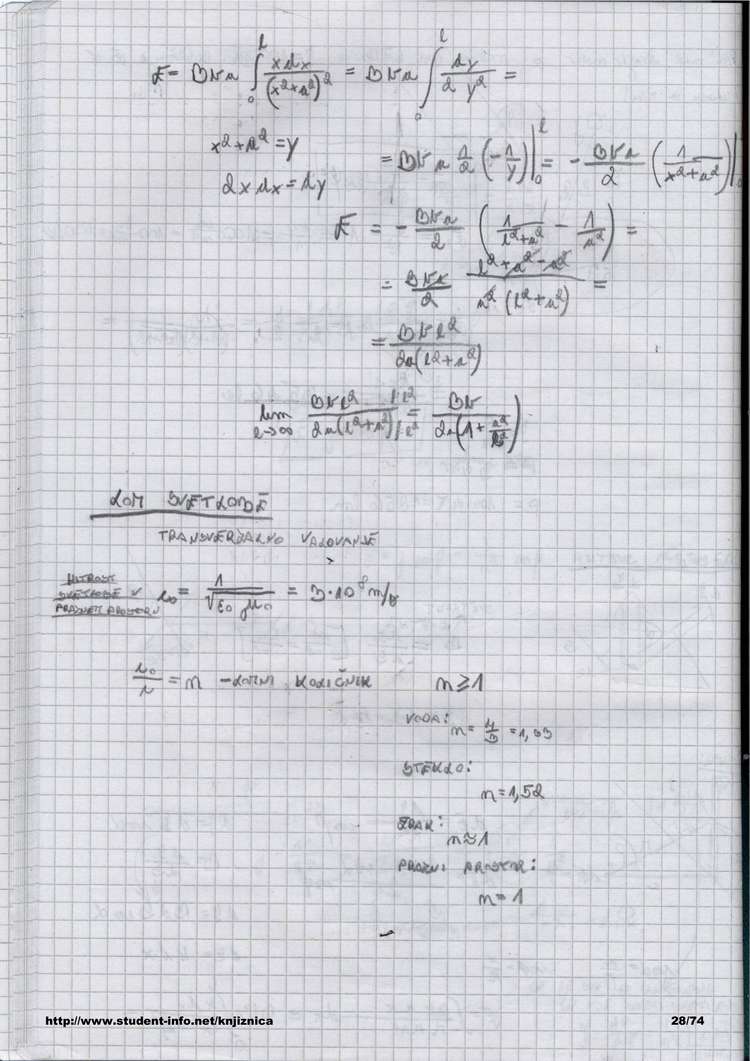 E = BVa ∫₀^l x dx / (x²+a²)² = BVa ∫₀^l dy / 2 y² =
x²+a² = y
= BVa 1/2 (-1/y)|₀^l = - BVa/2 (1/(x²+a²))|₀
2x dx = dy
E = - BVa/2 (1/(l²+a²) - 1/a²) =
= BVa/2 (l²+a²-a²)/(a²(l²+a²)) =
= BVl²/(2a(l²+a²))
lim l→∞ BVl²/(2a(l²+a²)) |:l² |:l² = BV/(2a(1+a²/l²))
LOM SVETLOBE
TRANSVERZALNO VALOVANJE
HITROST
SVETLOBE V
PRAZNEM PROSTORU
c₀ = 1/√(ε₀ μ₀) = 3·10⁸ m/s
c₀/c = n - LOMNI KOLIČNIK n ≥ 1
VODA:
n = 4/3 = 1,33
STEKLO:
n = 1,52
ZRAK:
n ≈ 1
PRAZNI PROSTOR:
n = 1
http://www.student-info.net/knjiznica 28/74